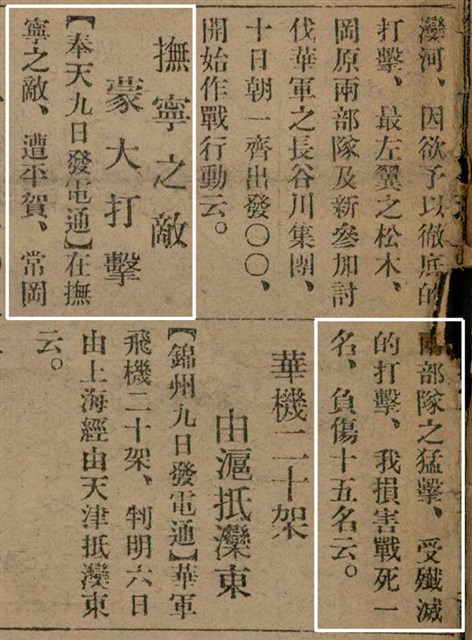 灤河、因欲予以徹底的
打擊、最左翼之松木、
岡原兩部隊及新參加討
伐華軍之長谷川集團、
十日朝一齊出發〇〇、
開始作戰行動云。
撫寧之敵
蒙大打擊
【奉天九日發電通】在撫
寧之敵、遭平賀、常岡
兩部隊之猛擊、受殲滅
的打擊、我損害戰死一
名、負傷十五名云。
華機二十架
由滬抵灤東
【錦州九日發電通】華軍
飛機二十架、判明六日
由上海經由天津抵灤東
云。